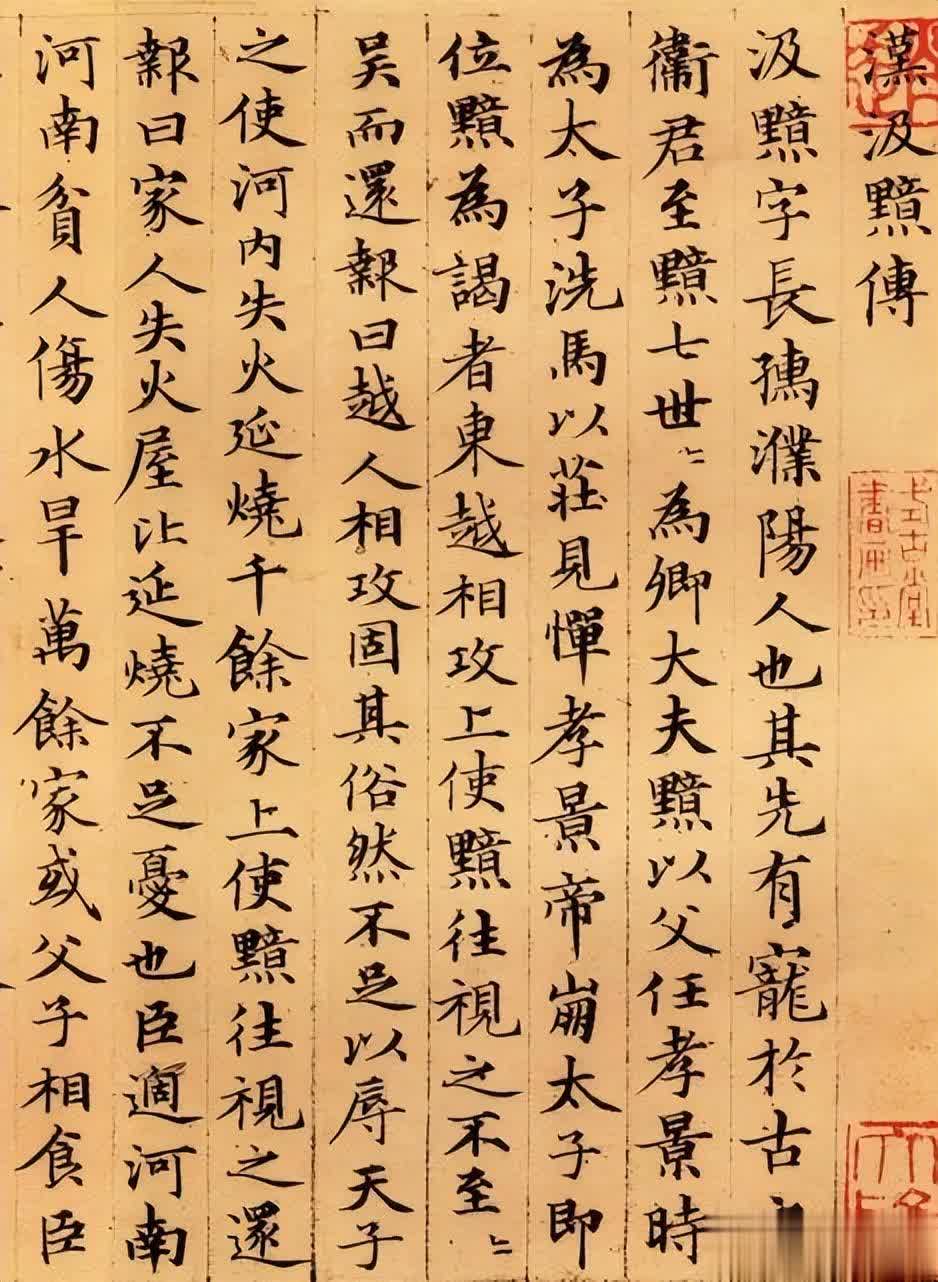 漢汲黯傳
汲黯字長孺濮陽人也其先有寵於古
衛君至黯七世〻為卿大夫黯以父任孝景時
為太子洗馬以莊見憚孝景帝崩太子即
位黯為謁者東越相攻上使黯往視之不至〻
吴而還報曰越人相攻固其俗然不足以辱天子
之使河内失火延燒千餘家上使黯往視之還
報曰家人失火屋比延燒不足憂也臣適河南
河南貧人傷水旱萬餘家或父子相食臣